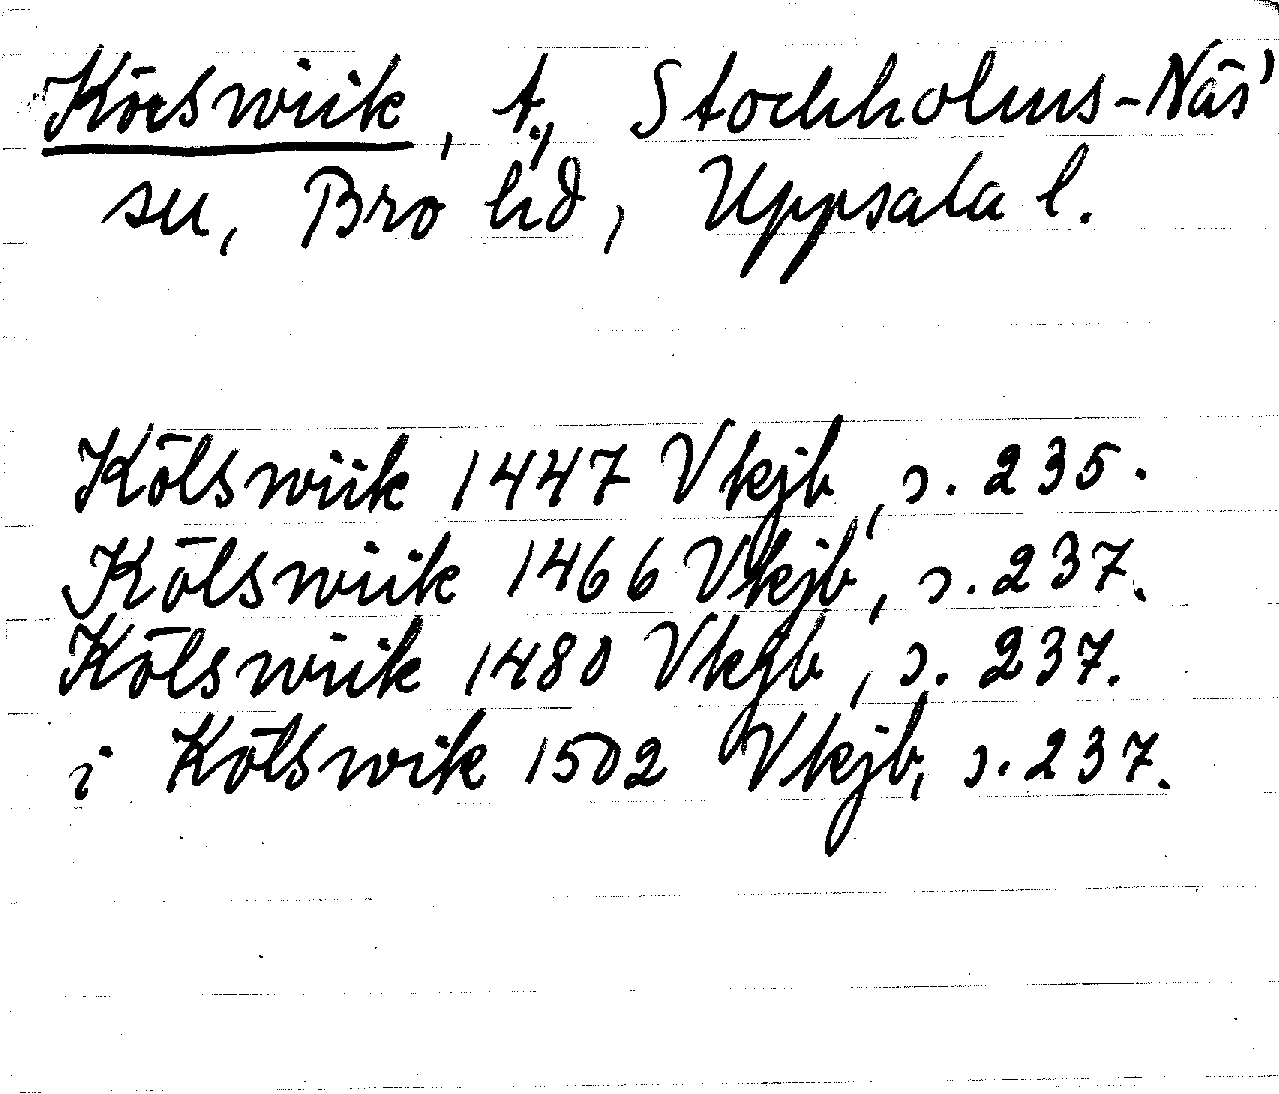 Kölswiik, t., Stockholms-Näs'
sn, Bro hd, Uppsala l.
Kölswiik 1447 Vkjb, s. 235.
Kölswiik 1466 Vkjb, s. 237.
Kölswiik 1480 Vkjb, s. 237.
i Kölswik 1502 Vkjb, s. 237.